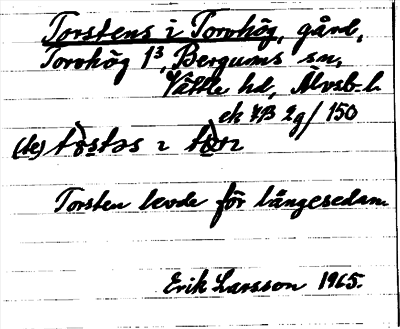 Torstens i Torvhög, gård,
Torvhög 1³, Bergums sn,
Vättle hd, Älvsb. l.
ek KB 2g/150
(te)
Torsten levde för längesedan.
Erik Larsson 1965.